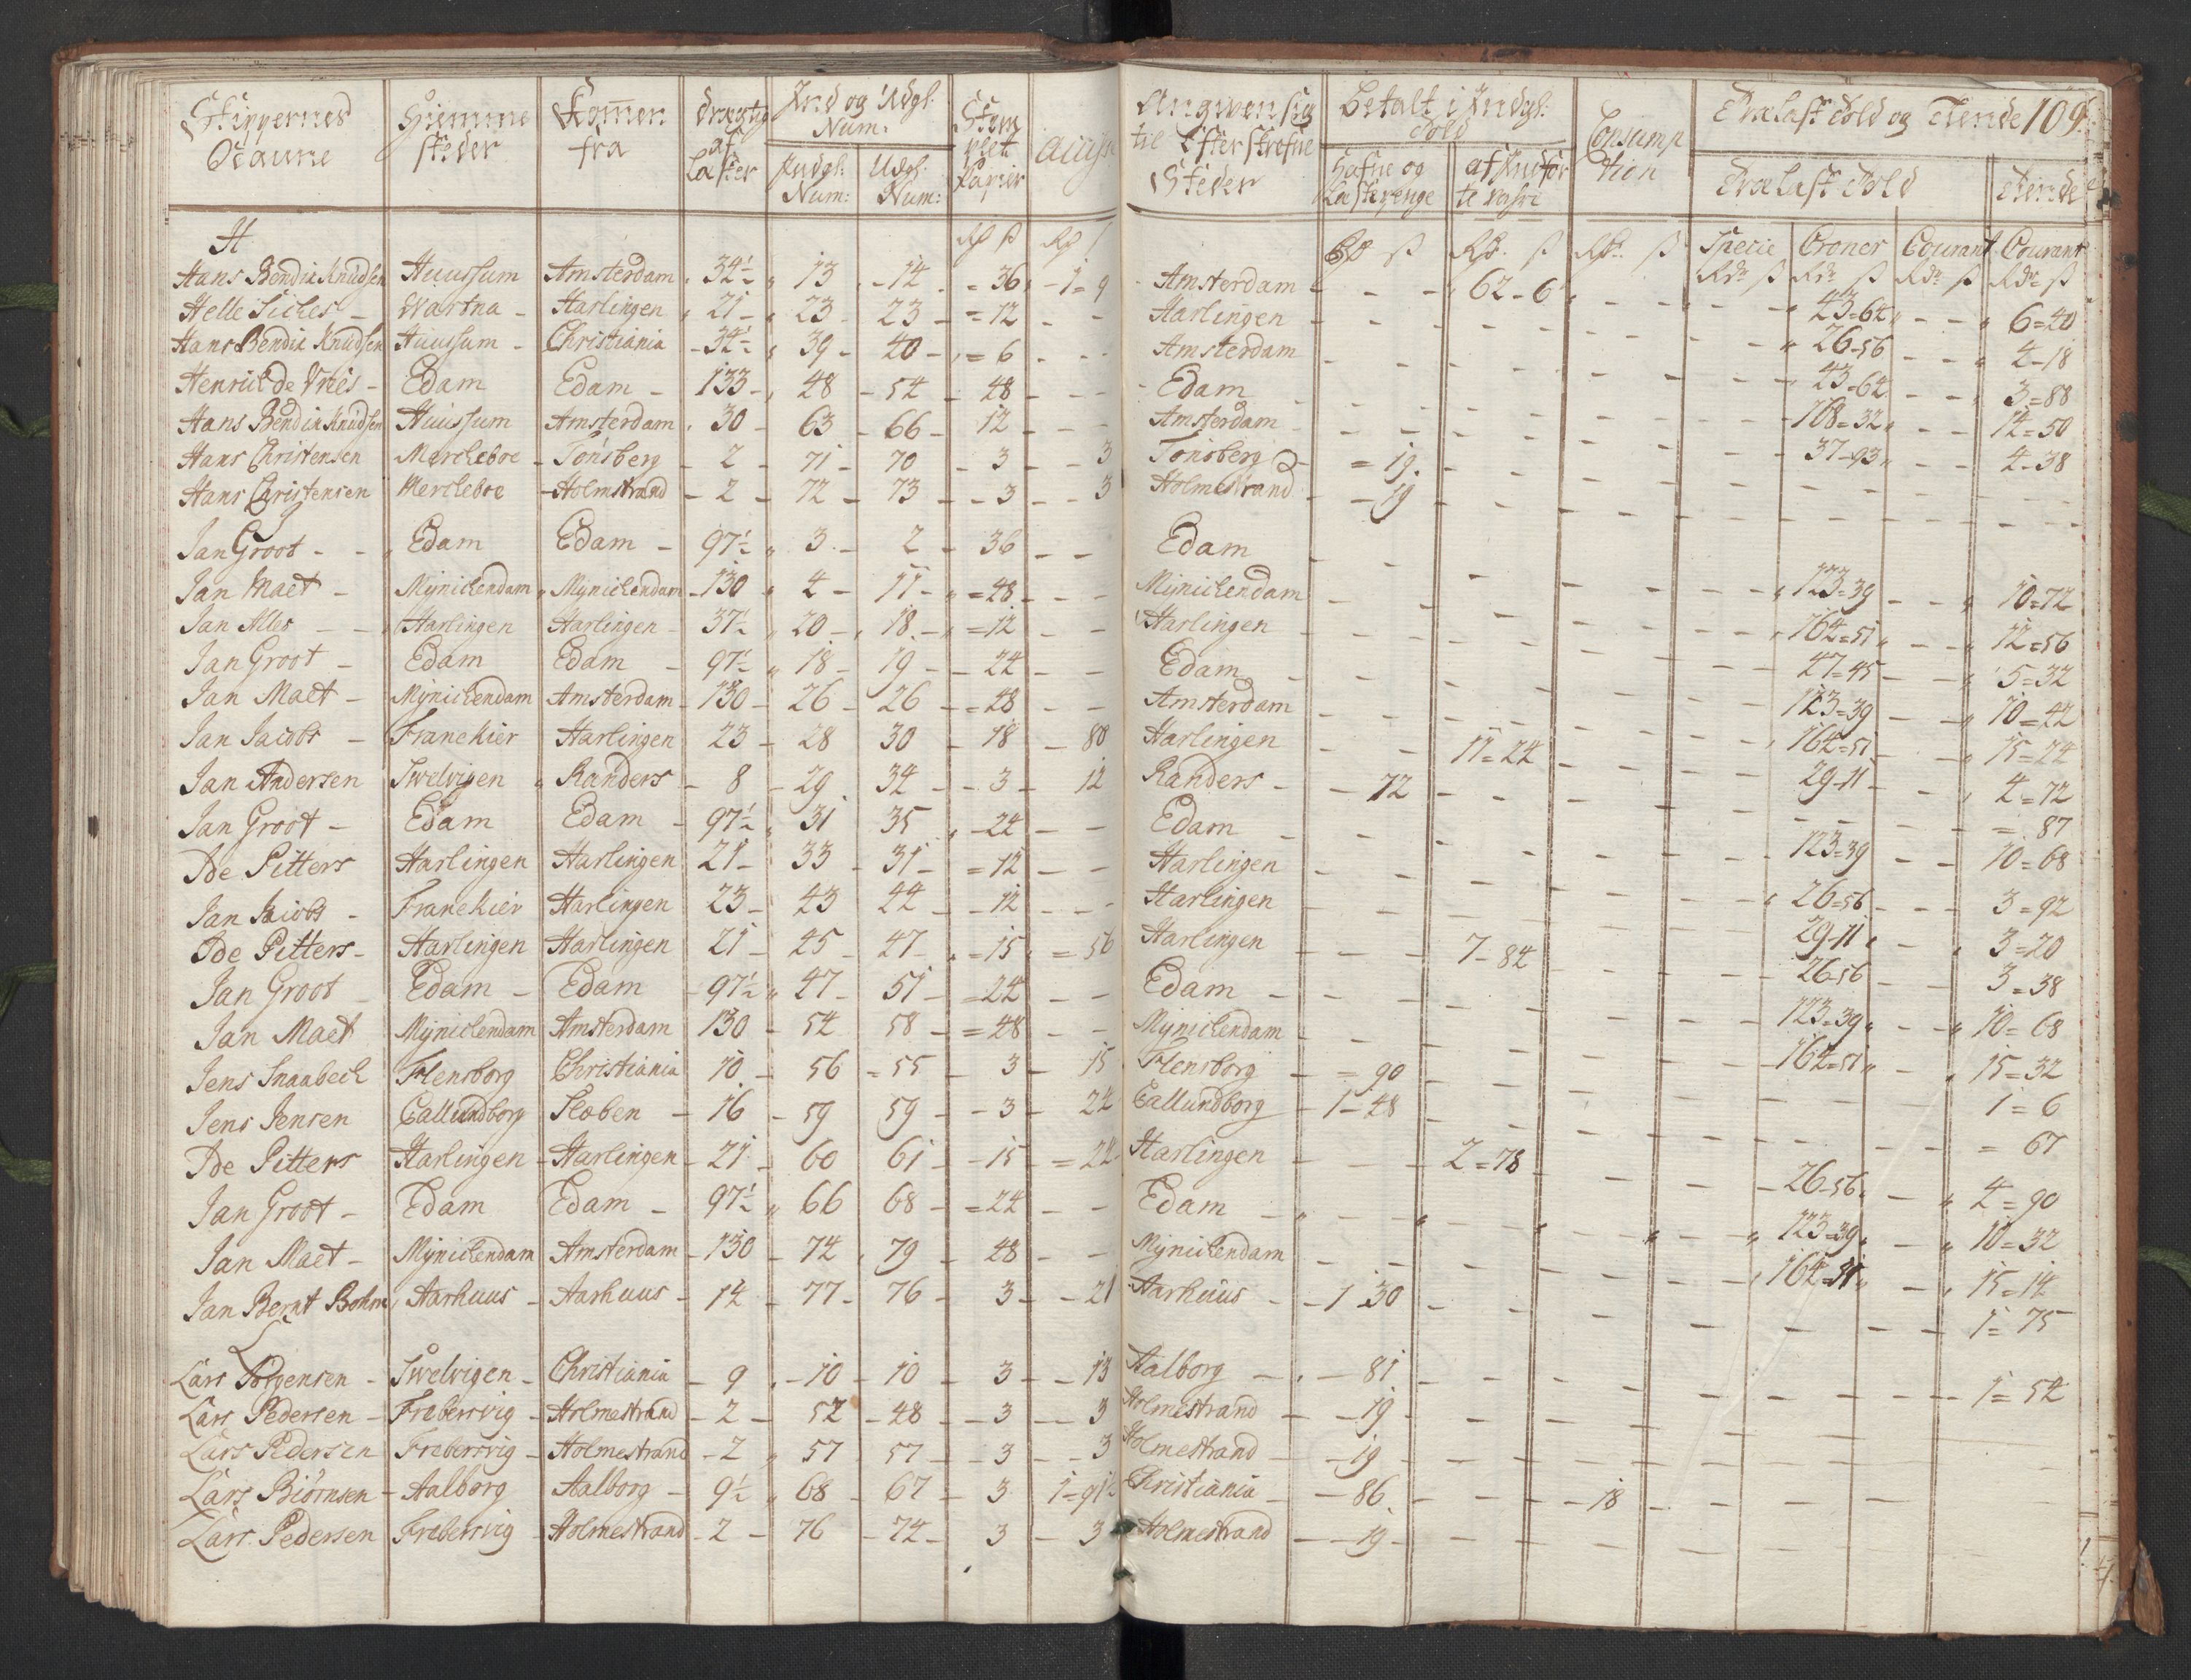 Skippernes Navne | Hiemme steder | Kommen fra | drægtig af Læster | Ind og Udgl. Num: | Stem plet Papier | Accise | Angiven sig til Efterskrefne Steder | Betalt i Indgl: Told | Consump tion | Trælast Told og Tiende 109.
Indgl: Num: | Udgl: Num: | Hafne og Læstepenge | af Indfør te vahre | Trælast Told | Tiende
Rd ß | Rd ß | Rd ß | Rd. ß | Rd. ß | Specie Rdr ß | Croner Rdr ß | Courant Rdr ß | Courant Rdr ß
H
Hans Bendix Knudsen | Huussum | Amsterdam | 34½ | 13 | 14 | 36 | 1=9 | Amsterdam | 62-6 | 43=64 | 6=40
Helle Sickes | Wartna | Harlingen | 21 | 23 | 23 | 12 | Harlingen | 26-56 | 4-18
Hans Bendix Knudsen | Huussum | Christiania | 34½ | 39 | 40 | 6 | Amsterdam | 43=64 | 3=88
Henrich de Vries | Edam | Edam | 133 | 48 | 54 | 48 | Edam | 168=32 | 14=50
Hans Bendix Knudsen | Huussum | Amsterdam | 30 | 63 | 66 | 12 | Amsterdam | 37-93 | 4-38
Hans Christensen | Mercheboe | Tønsberg | 2 | 71 | 70 | 3 | 3 | Tønsberg | 19
Hans Christensen | Mercheboe | Holmstrand | 2 | 72 | 73 | 3 | 3 | Holmestrand | 19
Jan Groot | Edam | Edam | 97½ | 3 | 2 | 36 | Edam | 123=39 | 10=72
Jan Maet | Mynichendam | Mynichendam | 130 | 4 | 11 | 48 | Mynichendam | 164=51 | 12=56
Jan Alles | Harlingen | Harlingen | 37½ | 20 | 18 | 12 | Harlingen | 47=45 | 5=32
Jan Groot | Edam | Edam | 97½ | 18 | 19 | 24 | Edam | 123=39 | 10=42
Jan Maet | Mynichendam | Amsterdam | 130 | 26 | 26 | 48 | Amsterdam | 164=51 | 15=24
Jan Jacobs | Franekier | Harlingen | 23 | 28 | 30 | 18 | 80 | Harlingen | 11=24 | 29-11 | 4=72
Jan Andersen | Swelvigen | Randers | 8 | 29 | 34 | 3 | 12 | Randers | 72 | 87
Jan Groot | Edam | Edam | 97½ | 31 | 35 | 24 | Edam | 123=39 | 10=68
Ide Pitters | Harlingen | Harlingen | 21 | 33 | 31 | 12 | Harlingen | 26=56 | 3=92
Jan Jacobs | Franekier | Harlingen | 23 | 43 | 44 | 12 | Harlingen | 29-11 | 3=20
Ide Pitters | Harlingen | Harlingen | 21 | 45 | 47 | 15 | 56 | Harlingen | 7-84 | 26-56 | 3=38
Jan Groot | Edam | Edam | 97½ | 47 | 51 | 24 | Edam | 123=39 | 10=68
Jan Maet | Mynichendam | Amsterdam | 130 | 54 | 58 | 48 | Mynichendam | 164=51 | 15=32
Jens Snaabech | Flensborg | Christiania | 10 | 56 | 55 | 3 | 15 | Flensborg | 90 | 1=6
Jens Jensen | Callundborg | Sleben | 16 | 59 | 59 | 3 | 24 | Callundborg | 1-48 | 67
Ide Pitters | Harlingen | Harlingen | 21 | 60 | 61 | 15 | 24 | Harlingen | 2=78 | 26-56 | 4=90
Jan Groot | Edam | Edam | 97½ | 66 | 68 | 24 | Edam | 123=39 | 10=32
Jan Maet | Mynichendam | Amsterdam | 130 | 74 | 79 | 48 | Mynichendam | 164=51 | 15=14
Jan Bernt Bohm | Aarhuus | Aarhuus | 14 | 77 | 76 | 3 | 21 | Aarhuus | 1-30 | 1=75
L
Lars Jørgensen | Swelvigen | Christiania | 9 | 10 | 10 | 3 | 13 | Aalborg | 81 | 1=54
Lars Pedersen | Frebersvig | Holmestrand | 2 | 52 | 48 | 3 | 3 | Holmestrand | 19
Lars Pedersen | Frebersvig | Holmestrand | 2 | 57 | 57 | 3 | 3 | Holmestrand | 19
Lars Biørnsen | Aalborg | Aalborg | 9½ | 68 | 67 | 3 | 1=91½ | Christiania | 86 | 18
Lars Pedersen | Frebersvig | Holmestrand | 2 | 76 | 74 | 3 | 3 | Holmestrand | 19